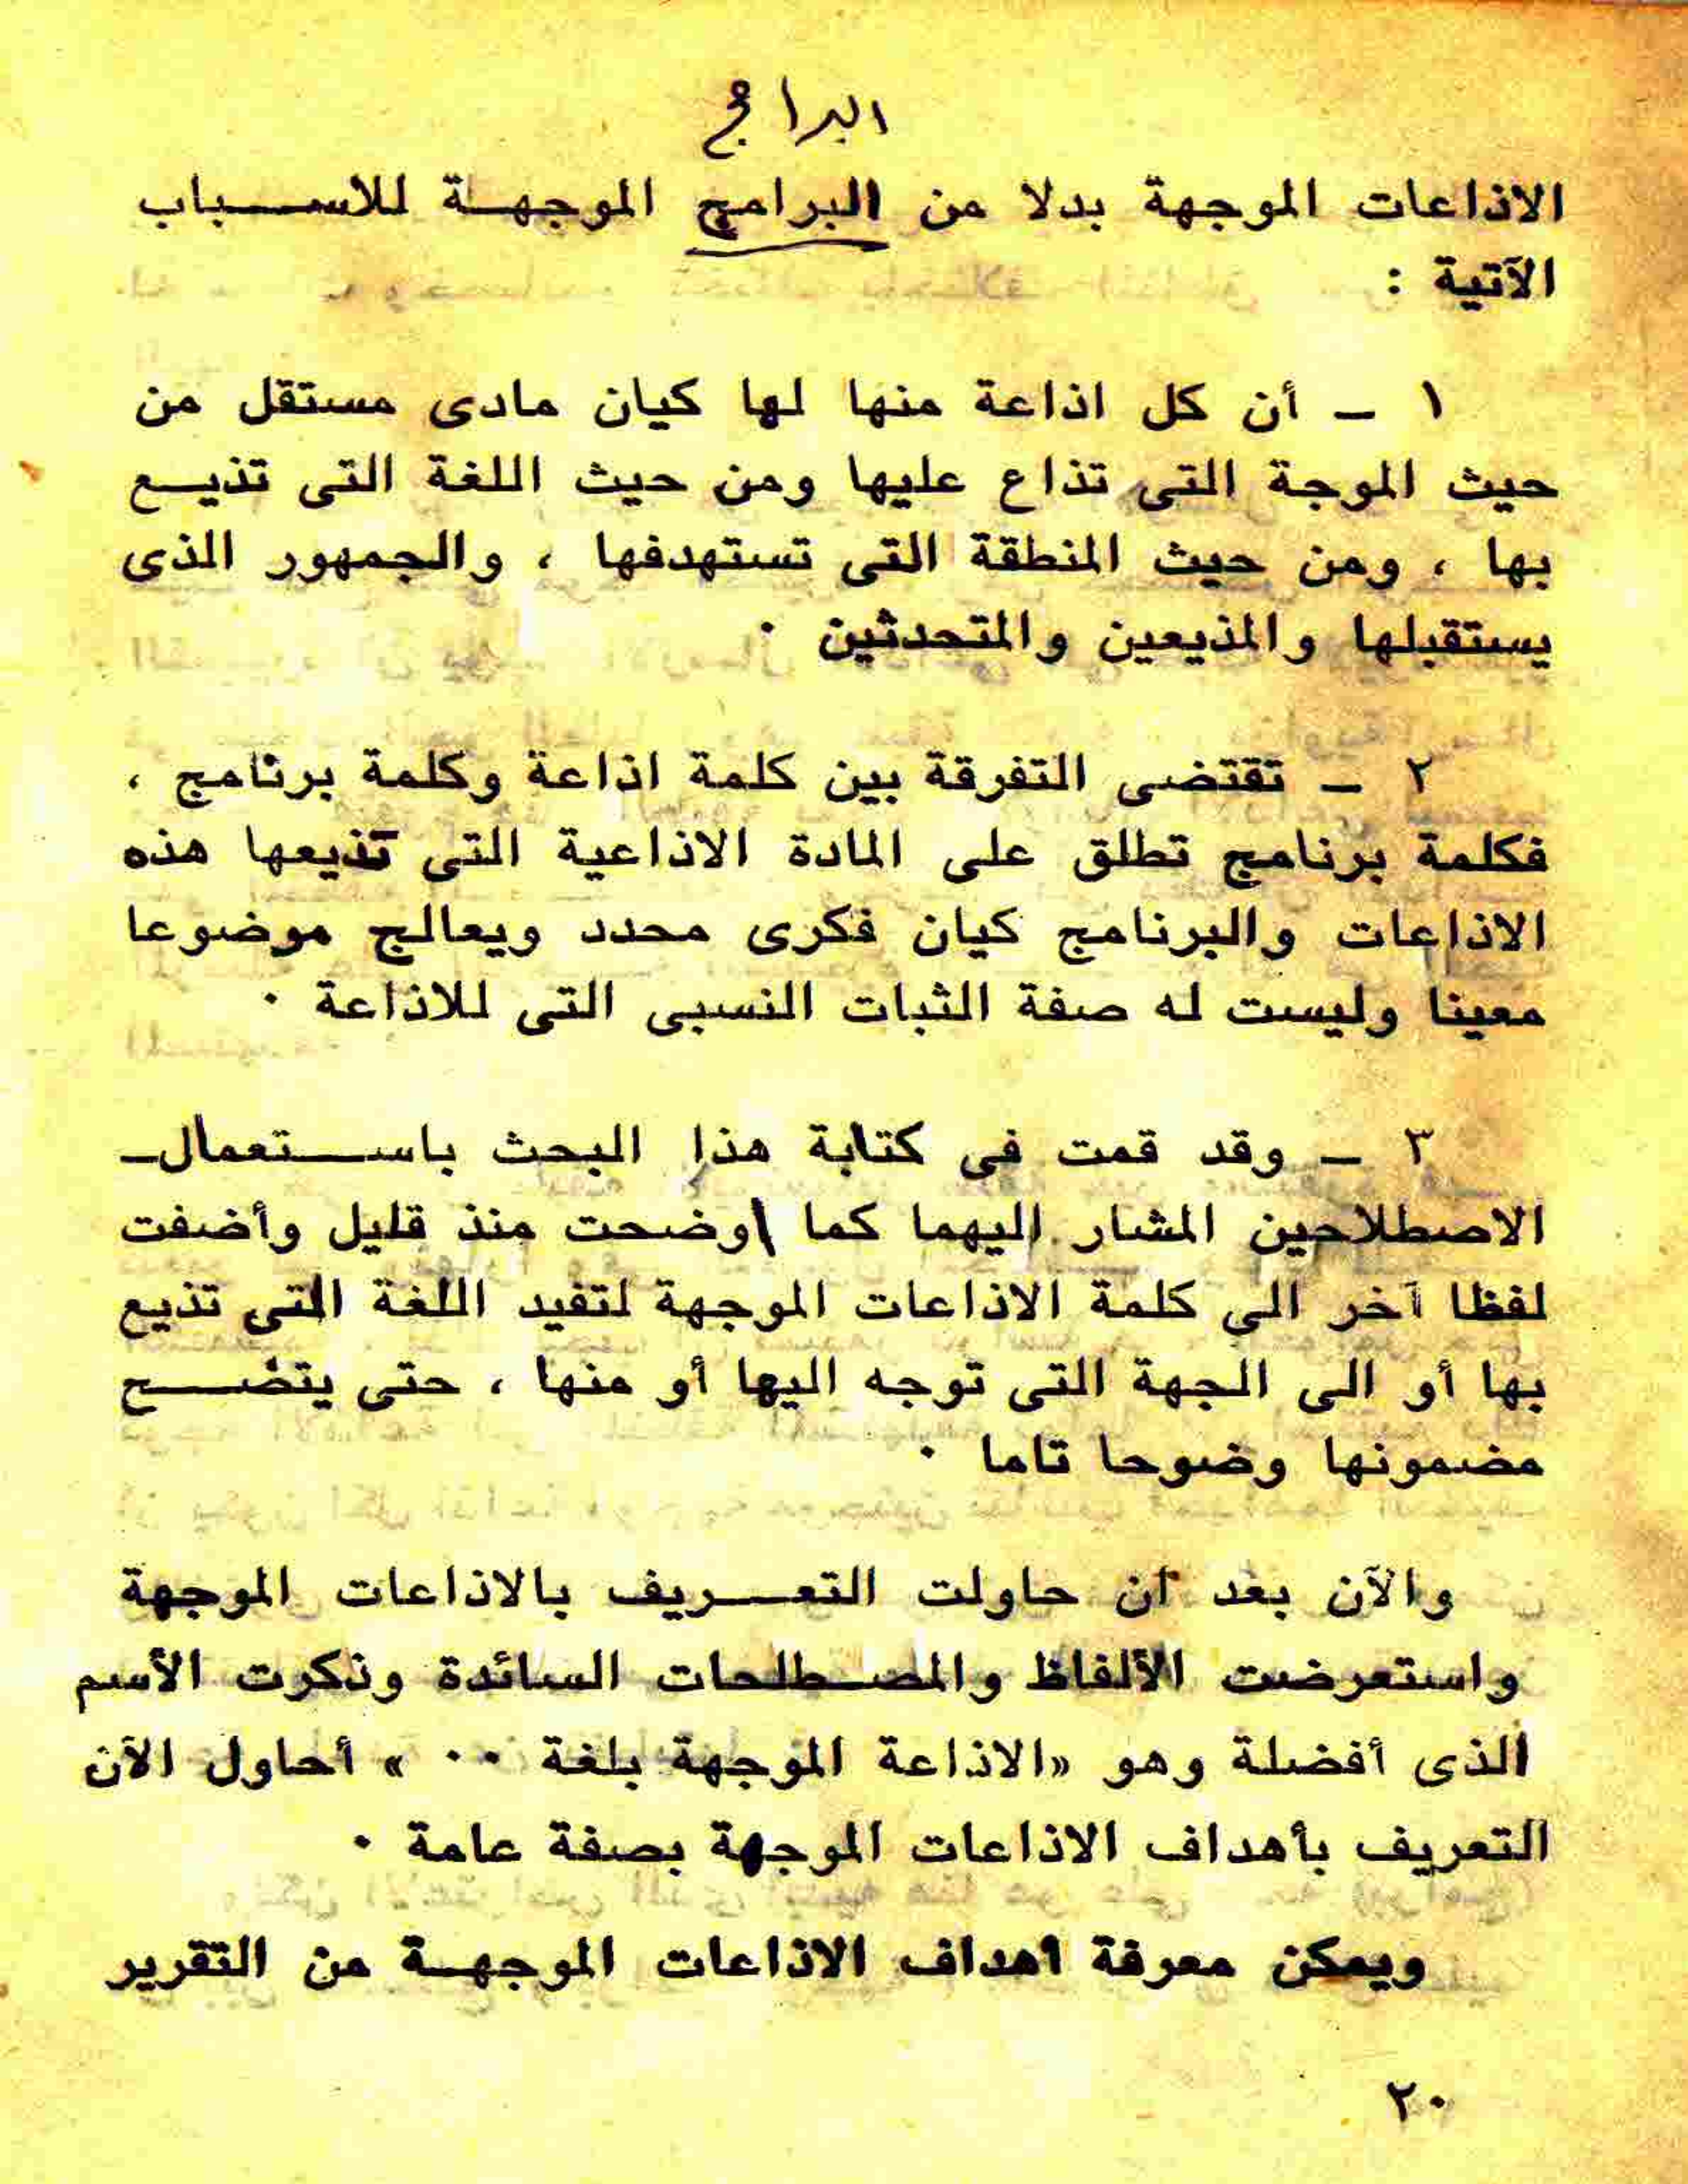 البرامج
الاذاعات الموجهة بدلا من البرامج الموجهة للاسباب
الآتية :
١ - أن كل اذاعة منها لها كيان مادى مستقل من
حيث الموجة التى تذاع عليها ومن حيث اللغة التى تذيع
بها ، ومن حيث المنطقة التى تستهدفها ، والجمهور الذى
يستقبلها والمذيعين والمتحدثين ·
٢ - تقتضى التفرقة بين كلمة اذاعة وكلمة برنامج ،
فكلمة برنامج تطلق على المادة الاذاعية التى تذيعها هذه
الاذاعات والبرنامج كيان فكرى محدد ويعالج موضوعا
معينا وليست له صفة الثبات النسبى التى للاذاعة ·
٣ - وقد قمت فى كتابة هذا البحث باستعمال
الاصطلاحين المشار اليهما كما اوضحت منذ قليل وأضفت
لفظا آخر الى كلمة الاذاعات الموجهة لتفيد اللغة التى تذيع
بها أو الى الجهة التى توجه اليها أو منها ، حتى يتضح
مضمونها وضوحا تاما ·
والآن بعد أن حاولت التعريف بالاذاعات الموجهة
واستعرضت الألفاظ والمصطلحات السائدة وذكرت الأسم
الذى أفضلة وهو «الاذاعة الموجهة بلغة ·· » أحاول الآن
التعريف بأهداف الاذاعات الموجهة بصفة عامة ·
ويمكن معرفة اهداف الاذاعات الموجهة من التقرير
٢٠